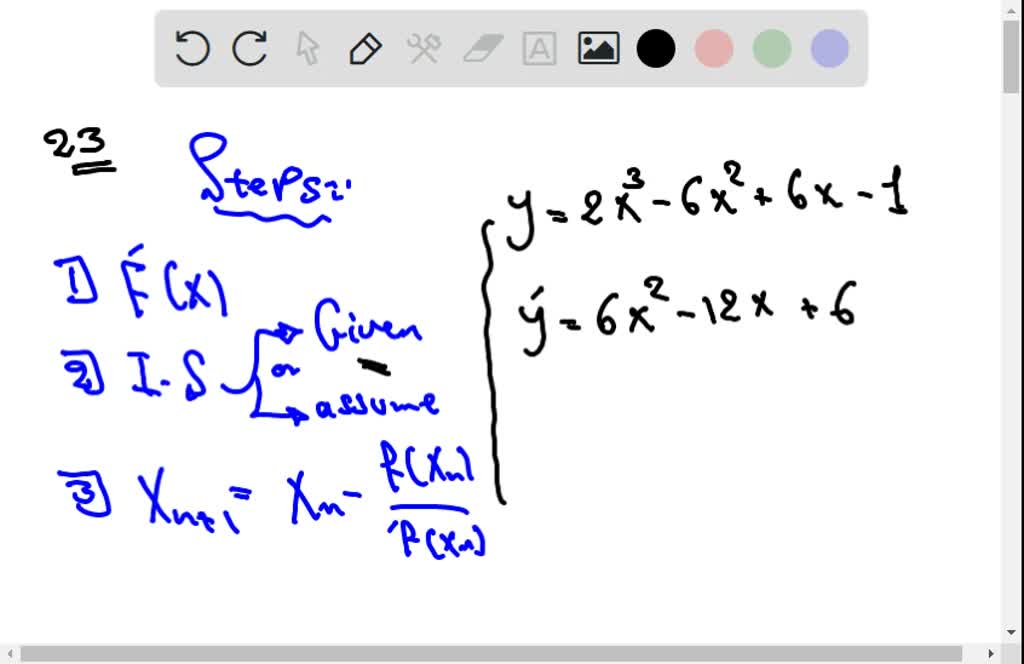 23
Steps:
1) f'(x)
2) I.S
Given
or
assume
3) Xn+1 = Xn - f(Xn) / f'(Xn)
y = 2x³ - 6x² + 6x - 1
y' = 6x² - 12x + 6